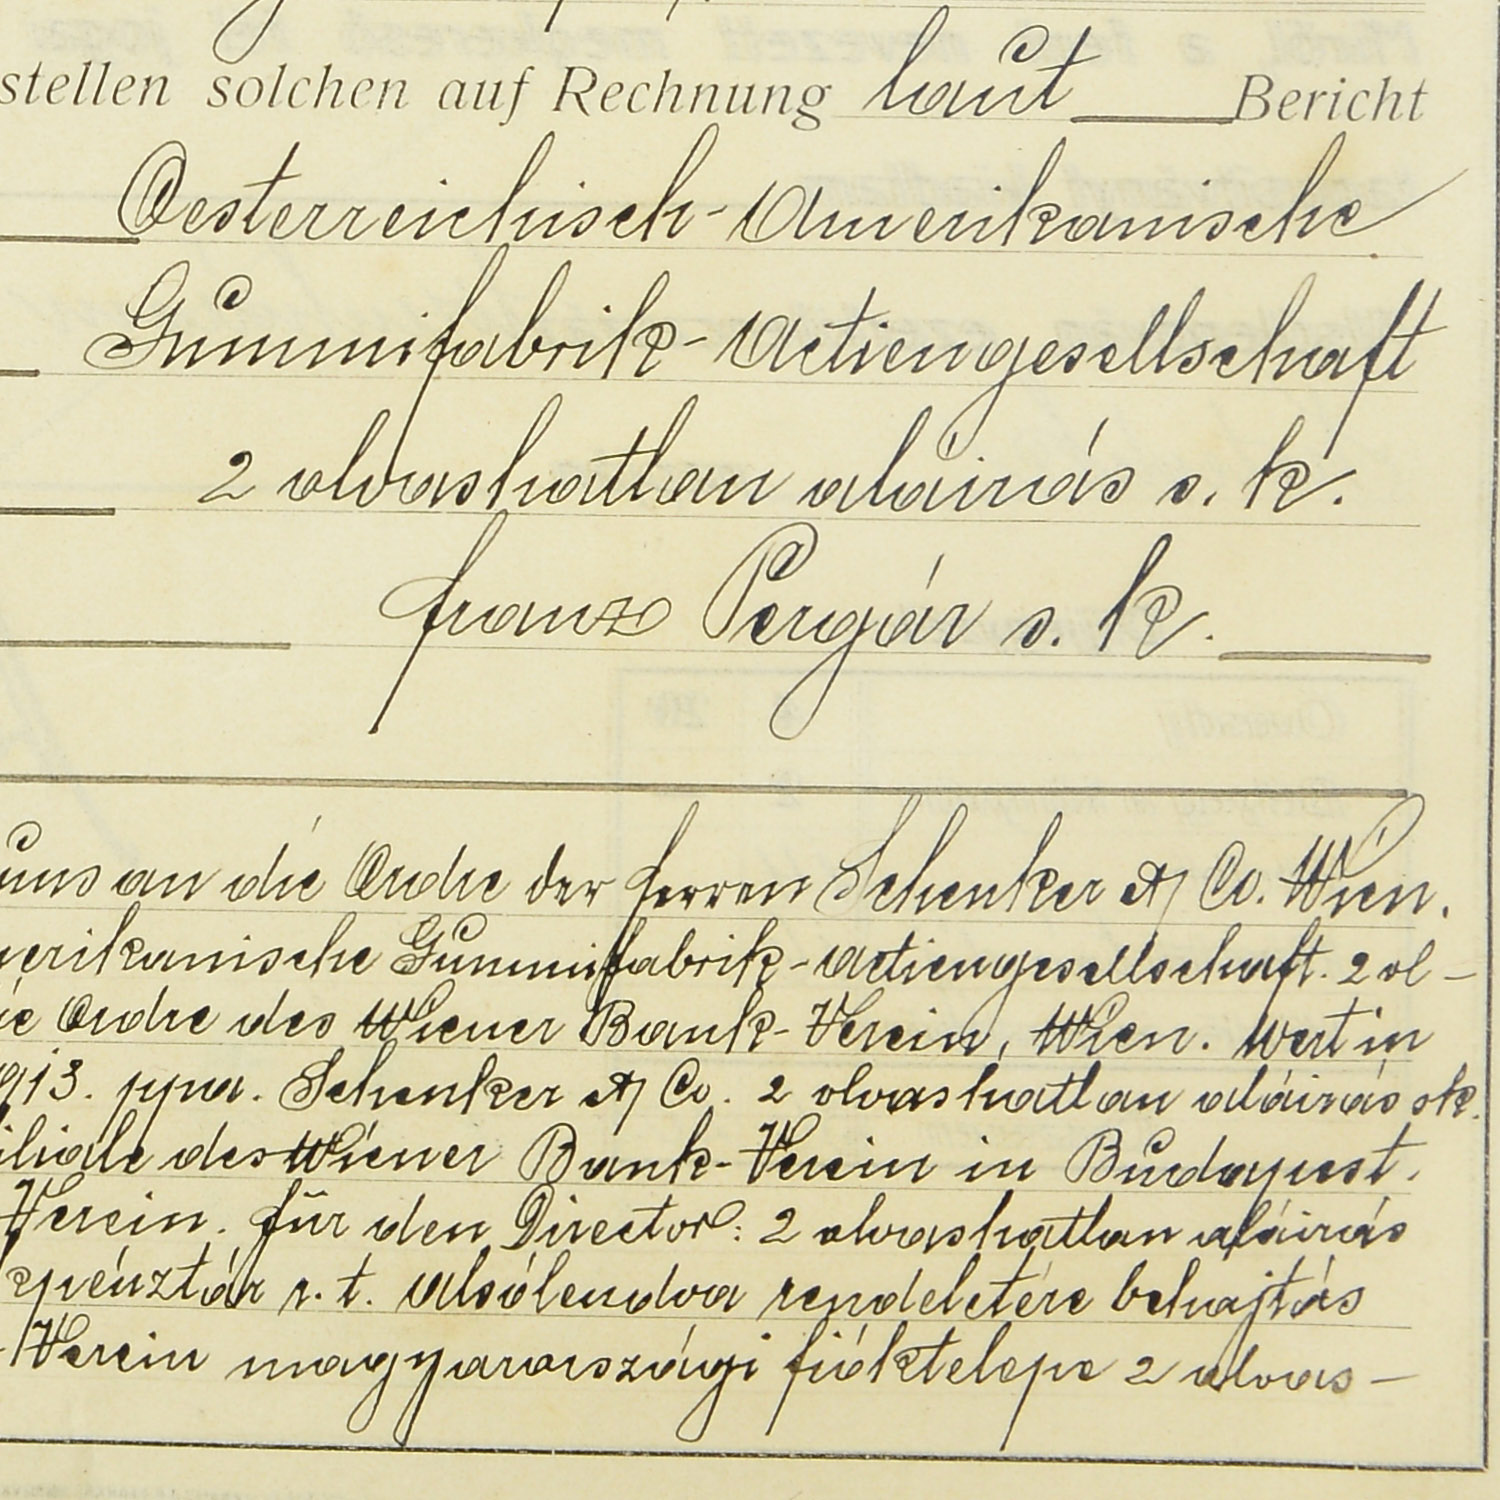 stellen solchen auf Rechnung laut Bericht
Oesterreichisch-Amerikanische
Gummifabrik-Actiengesellschaft
2 olvashatlan aláirás s. k.
Franz Pergár s. k.
uns an die Ordre der Herren Schenker & Co. Wien.
merikanische Gummifabrik-Actiengesellschaft. 2 ol-
ie Ordre des Wiener Bank-Verein, Wien. Wert in
913. ppa. Schenker & Co. 2 olvashatlan aláirás sk.
iliale des Wiener Bank-Verein in Budapest.
Verein. Für den Director: 2 olvashatlan aláirás
epénztár r. t. Alsólendva rendeletére behajtás
Verein magyarországi fióktelepe 2 olvas-